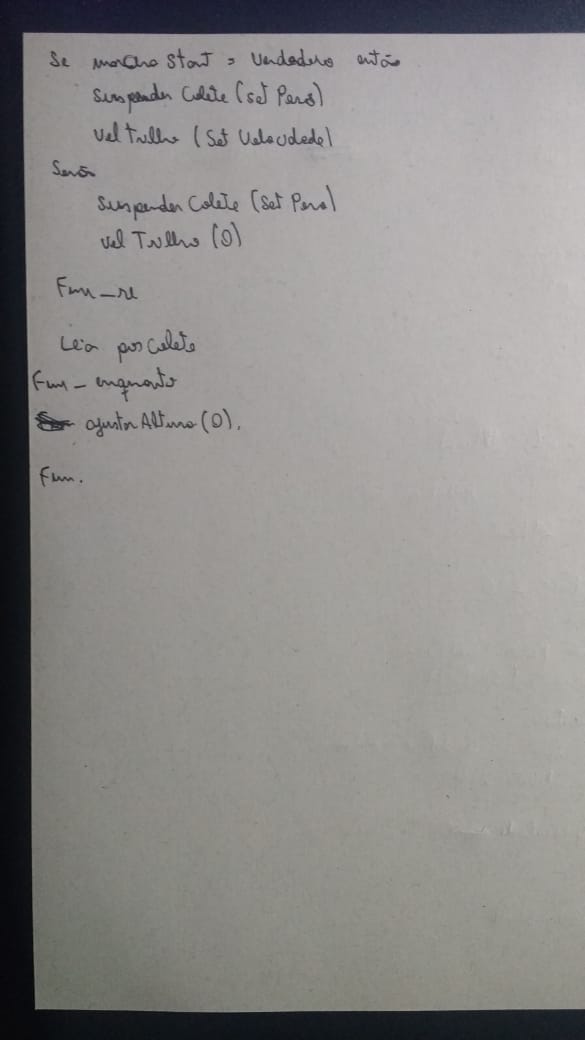 Se marcha Start = Verdadeiro então
suspender Colete (set Peso)
vel Trilho (Set Velocidade)
Senão
suspender Colete (Set Peso)
vel Trilho (0)
Fim_se
Leia pos Colete
Fim_enquanto
ajustar Altura (0).
Fim.